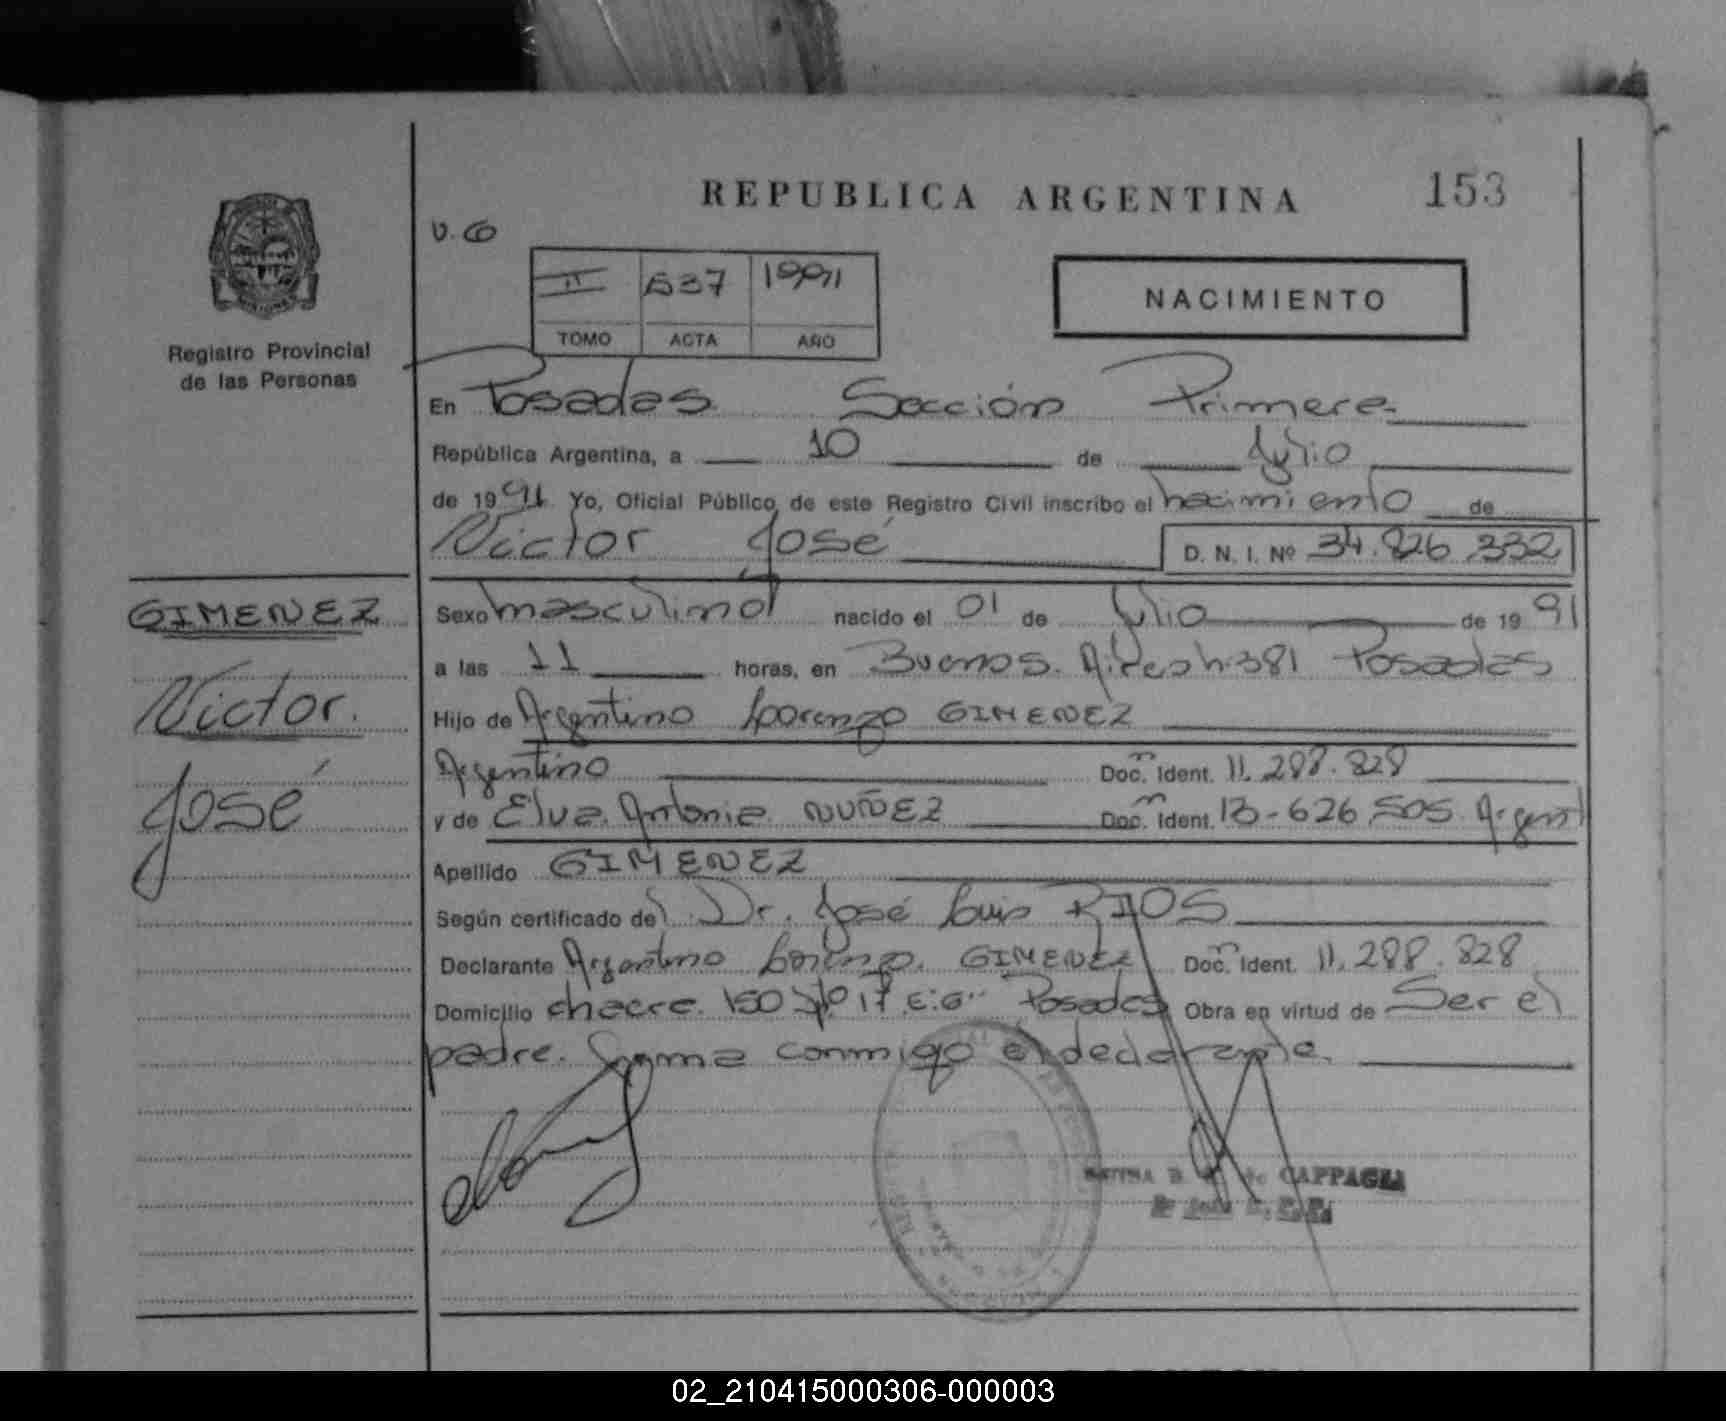 REPUBLICA ARGENTINA
153
V.G
II 637 1991
TOMO ACTA AÑO
NACIMIENTO
Registro Provincial
de las Personas
En Posadas Sección Primera
República Argentina, a 10 de Julio
de 1991 Yo, Oficial Público de este Registro Civil inscribo el nacimiento de
Victor José D. N. I. Nº 34.826.332
GIMENEZ
Victor.
José
Sexo masculino nacido el 01 de Julio de 1991
a las 11 horas, en Buenos Aires n. 381 Posadas
Hijo de Argentino Lorenzo GIMENEZ
Argentino Doc. Ident. 11.288.828
y de Elva Antonia NUÑEZ Doc. Ident. 13-626.505 Argent
Apellido GIMENEZ
Según certificado del Dr. José Luis RIOS
Declarante Argentino Lorenzo GIMENEZ Doc. Ident. 11.288.828
Domicilio chacra 150 Posadas Obra en virtud de Ser el
padre. Firma conmigo el declarante.
CAPPAGLI
02_210415000306-000003